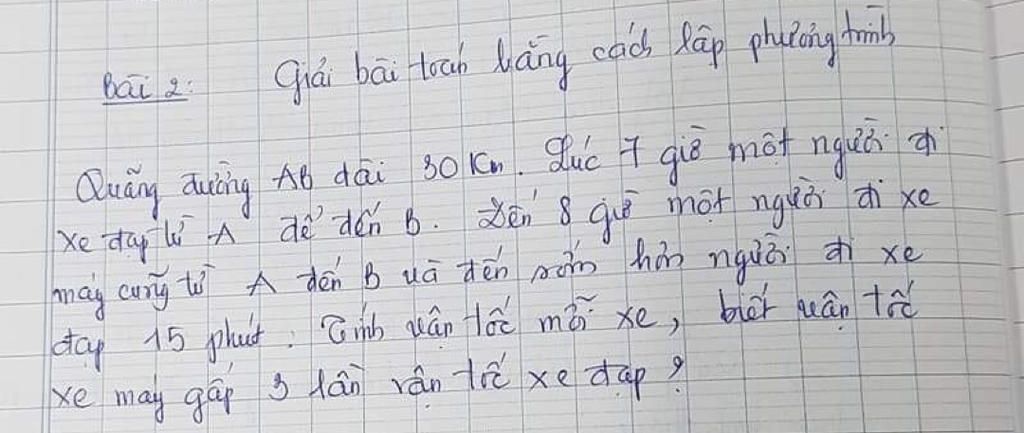 Bài 2: Giải bài toán bằng cách lập phương trình
Quãng đường AB dài 30 Km. Lúc 7 giờ một người đi
xe đạp từ A để đến B. Đến 8 giờ một người đi xe
máy cũng từ A đến B và đến sớm hơn người đi xe
đạp 15 phút. Tính vận tốc mỗi xe, biết vận tốc
xe máy gấp 3 lần vận tốc xe đạp?